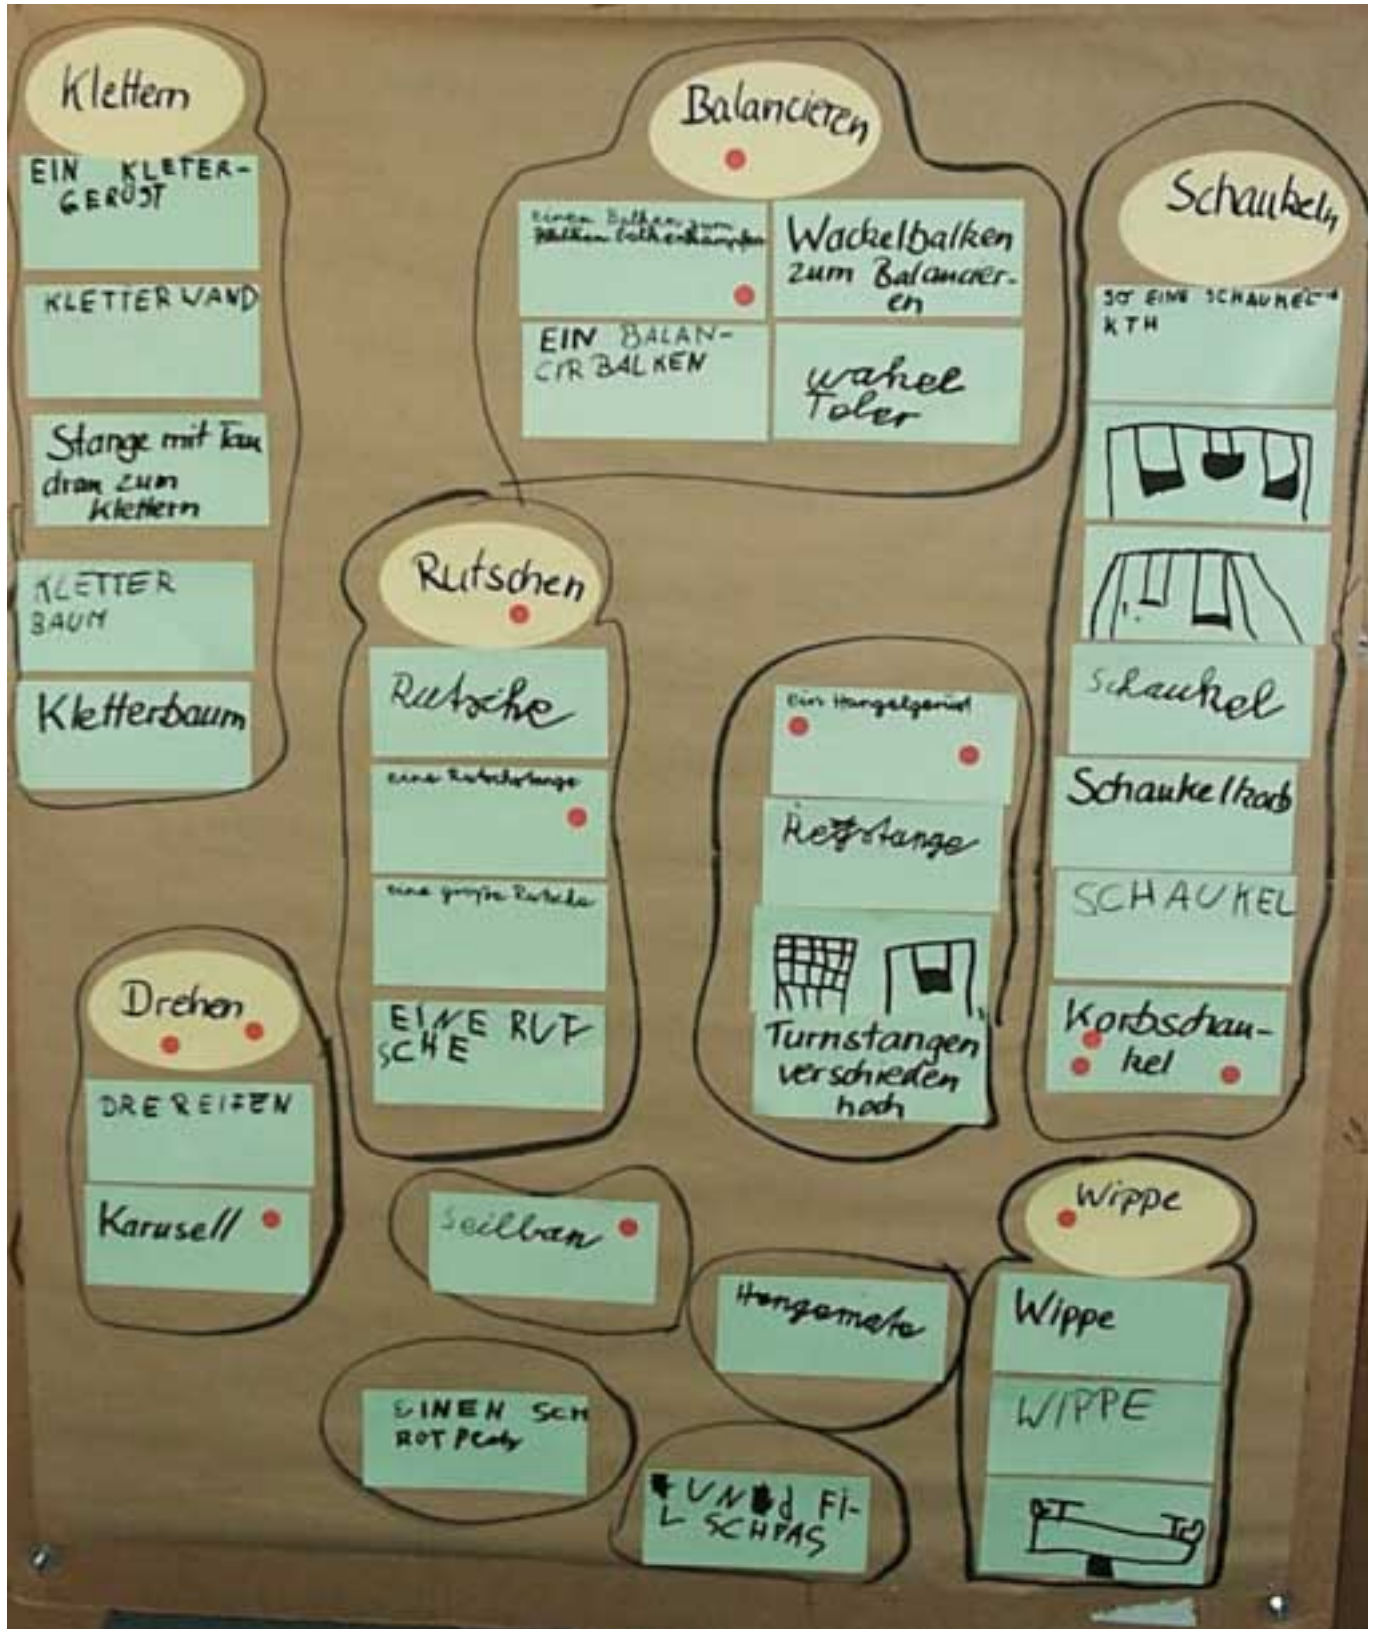 Klettern
EIN KLETER-
GERÜST
KLETTERWAND
Stange mit Tau
dran zum
klettern
KLETTER
BAUM
Kletterbaum
Balancieren
einen Balken zum
Wackelbalken
zum Balancier-
en
EIN BALAN-
CIRBALKEN
wakel
Schaukeln
SO EINE SCHAUKEL
KTH
Schaukel
Schaukelkorb
SCHAUKEL
Korbschau-
kel
Rutschen
Rutsche
eine Rutschstange
eine große Rutsche
EINE RUT
SCHE
ein Hangelgerüst
Turnstangen
verschieden
hoch
Drehen
DREREIFEN
Karusell
Seilban
Hangemate
EINEN SCH
ROTPlatz
UND FI-
L SCHPAS
Wippe
Wippe
WIPPE